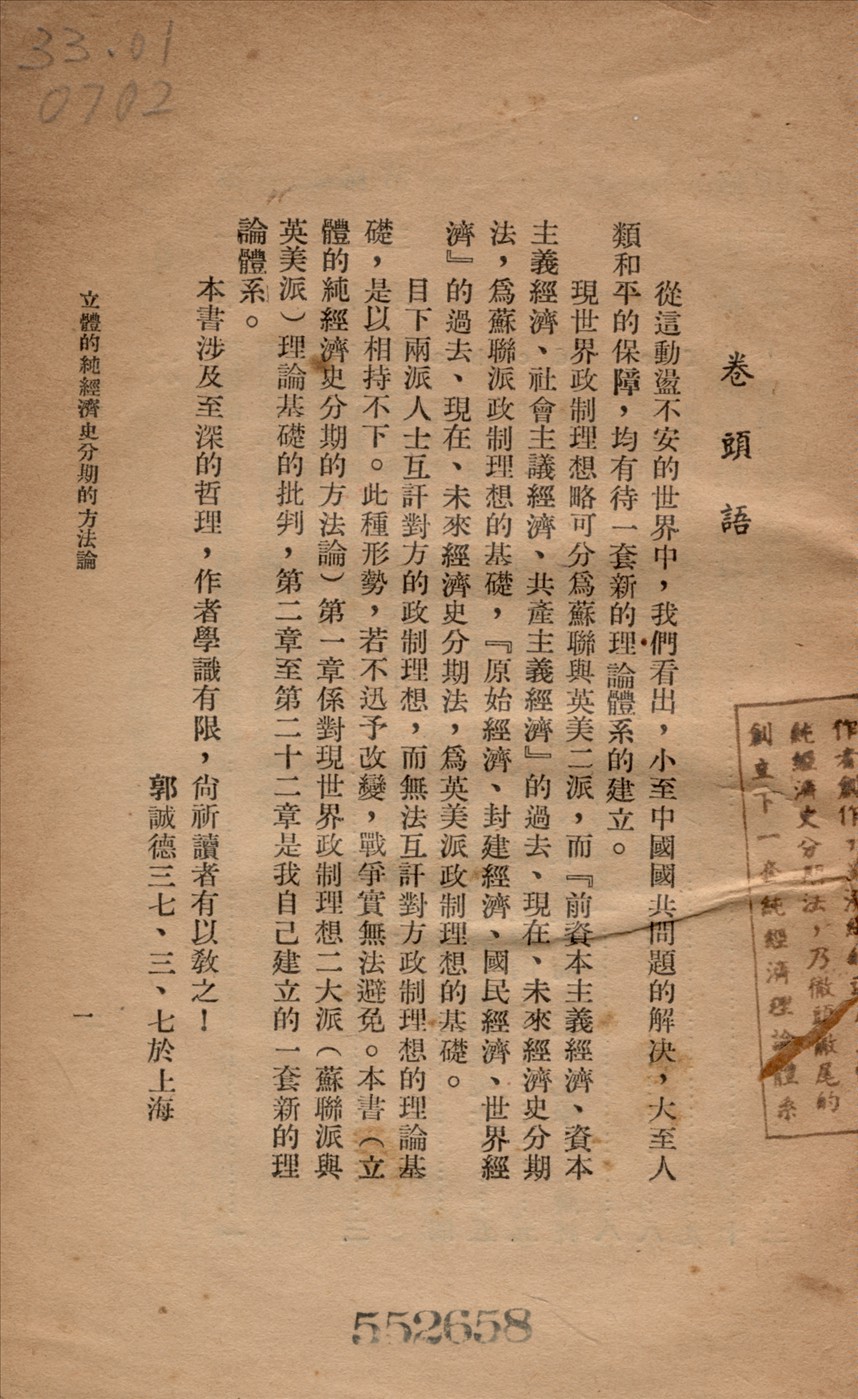 33.01
0702
卷頭語
從這動盪不安的世界中，我們看出，小至中國國共問題的解决，大至人
類和平的保障，均有待一套新的理論體系的建立。
現世界政制理想略可分爲蘇聯與英美二派，而『前資本主義經濟、資本
主義經濟、社會主議經濟、共產主義經濟』的過去、現在、未來經濟史分期
法，爲蘇聯派政制理想的基礎，『原始經濟、封建經濟、國民經濟、世界經
濟』的過去、現在、未來經濟史分期法，爲英美派政制理想的基礎。
目下兩派人士互訐對方的政制理想，而無法互訐對方政制理想的理論基
礎，是以相持不下。此種形勢，若不迅予改變，戰爭實無法避免。本書（立
體的純經濟史分期的方法論）第一章係對現世界政制理想二大派（蘇聯派與
英美派）理論基礎的批判，第二章至第二十二章是我自己建立的一套新的理
論體系。
本書涉及至深的哲理，作者學識有限，尙祈讀者有以敎之！
郭誠德三七、三、七於上海
立體的純經濟史分期的方法論
一
作者創作
純經濟史分期法，乃徹頭徹尾的
創立下一套純經濟理論體系
552658